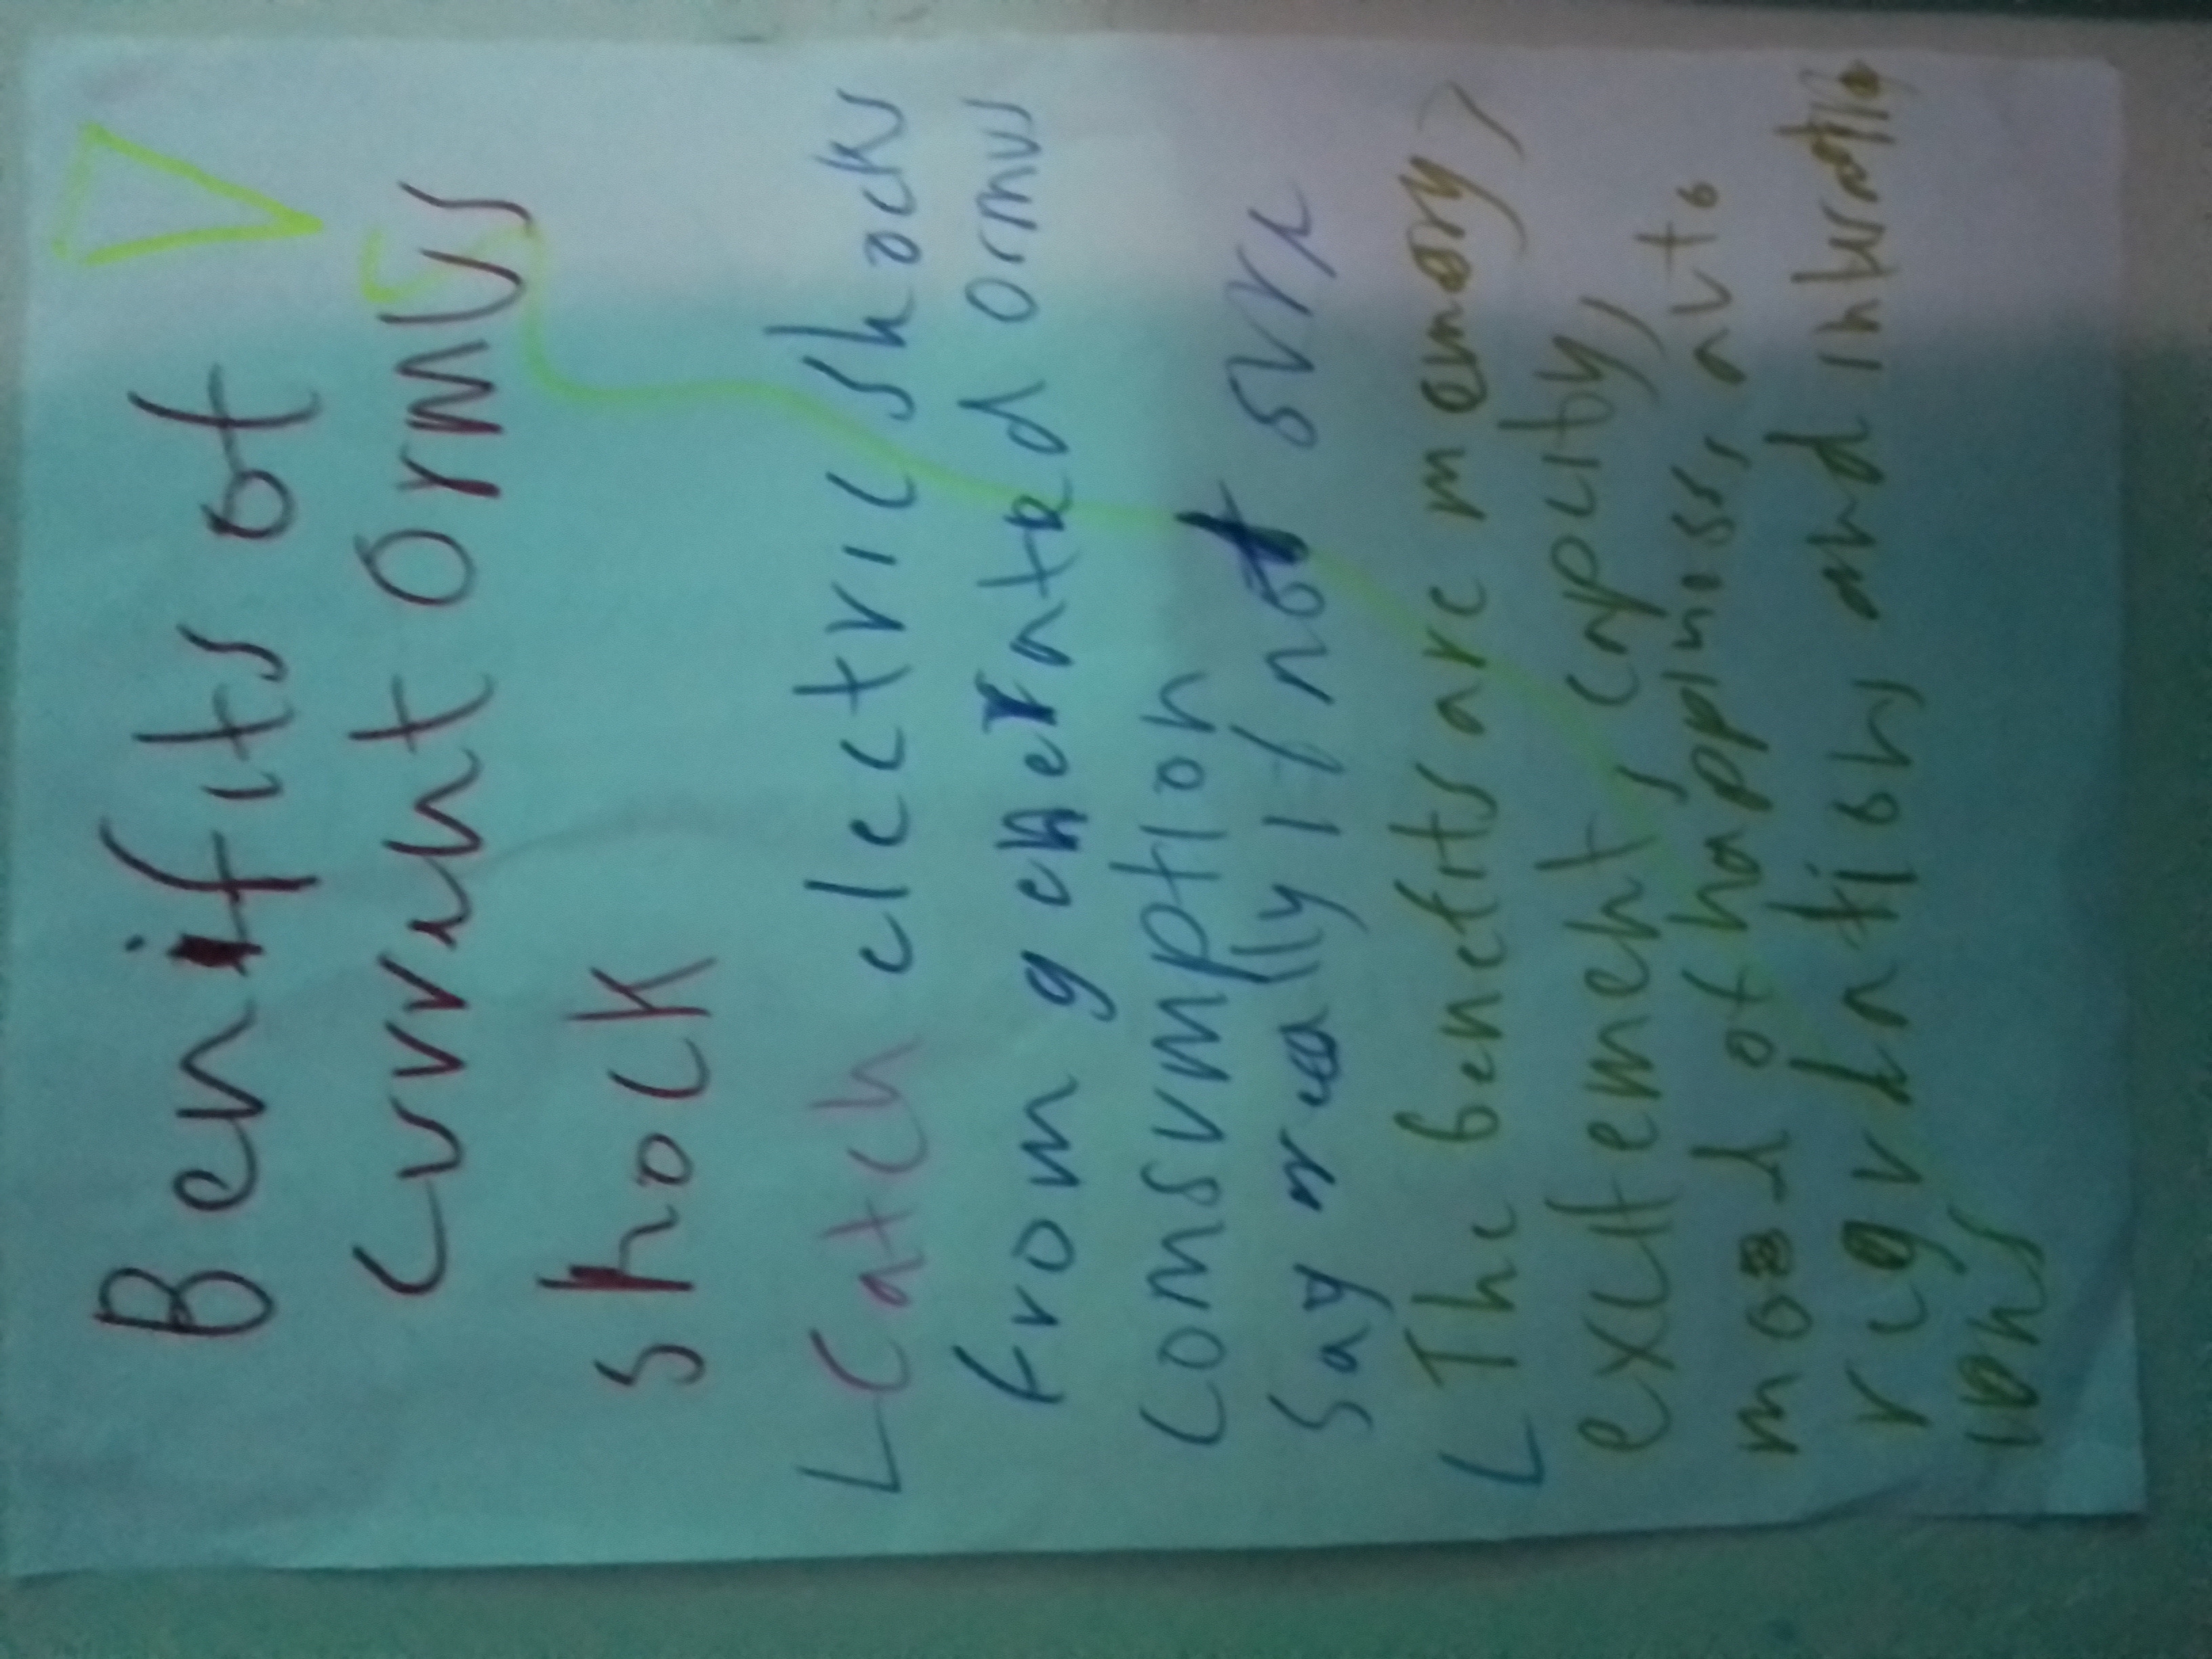 Benifits of
Current Ormus
shock
Catch electric shocks
from generated ormus
consumption
say really if not sure
The benefits are memory,
excitement, capcity,
mood of happiness, auto
regulations and interatio
ions